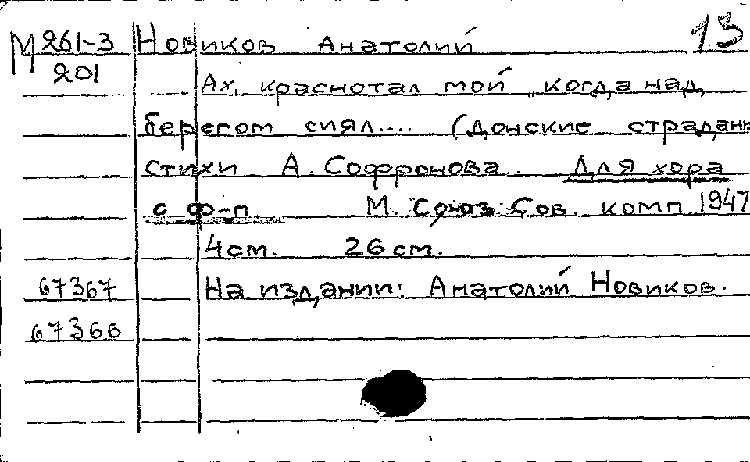 М 261-3 Новиков Анатолий 13
201 Ах, краснотал мой, когда над
берегом сиял.... (Донские страдан
стихи А. Софронова. Для хора
с ф-п М. Союз Сов. комп 1947
4см. 26 см.
67367 На издании: Анатолий Новиков.
67368